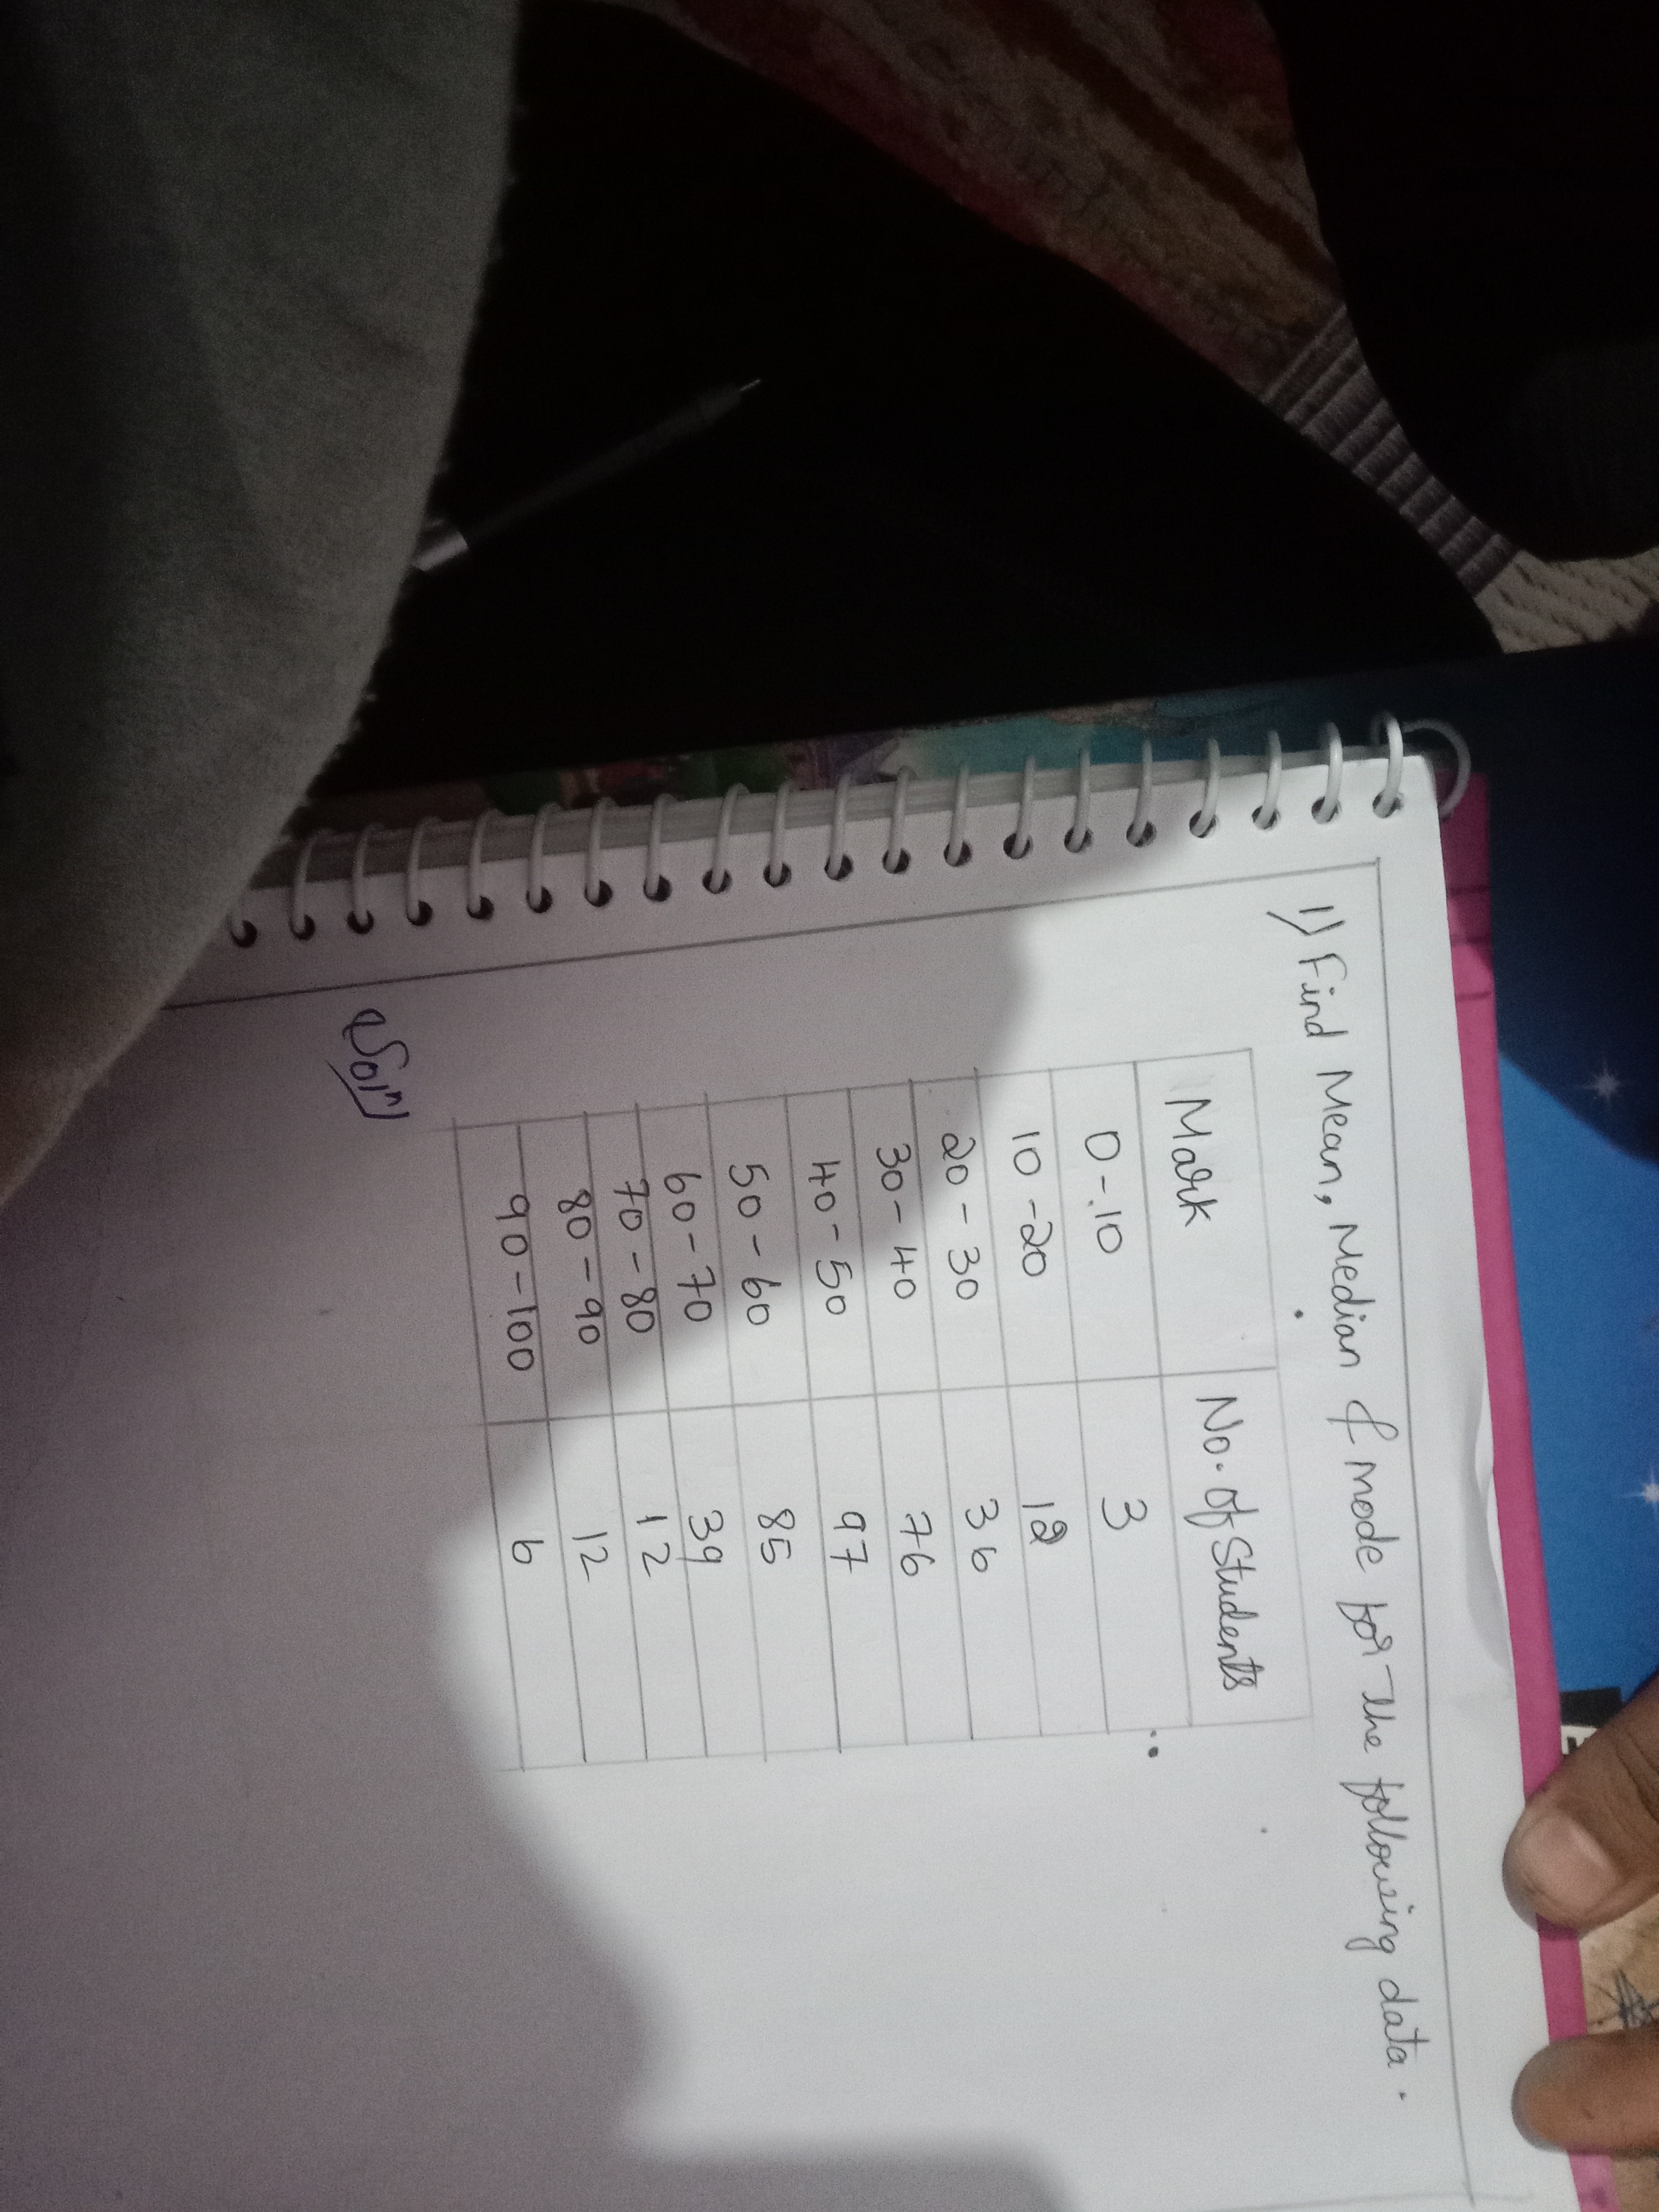 1) Find Mean, Median & mode for the following data.
Mark No. of Students
0-10 3
10-20 12
20-30 36
30-40 76
40-50 97
50-60 85
60-70 39
70-80 12
80-90 12
90-100 6
Soln